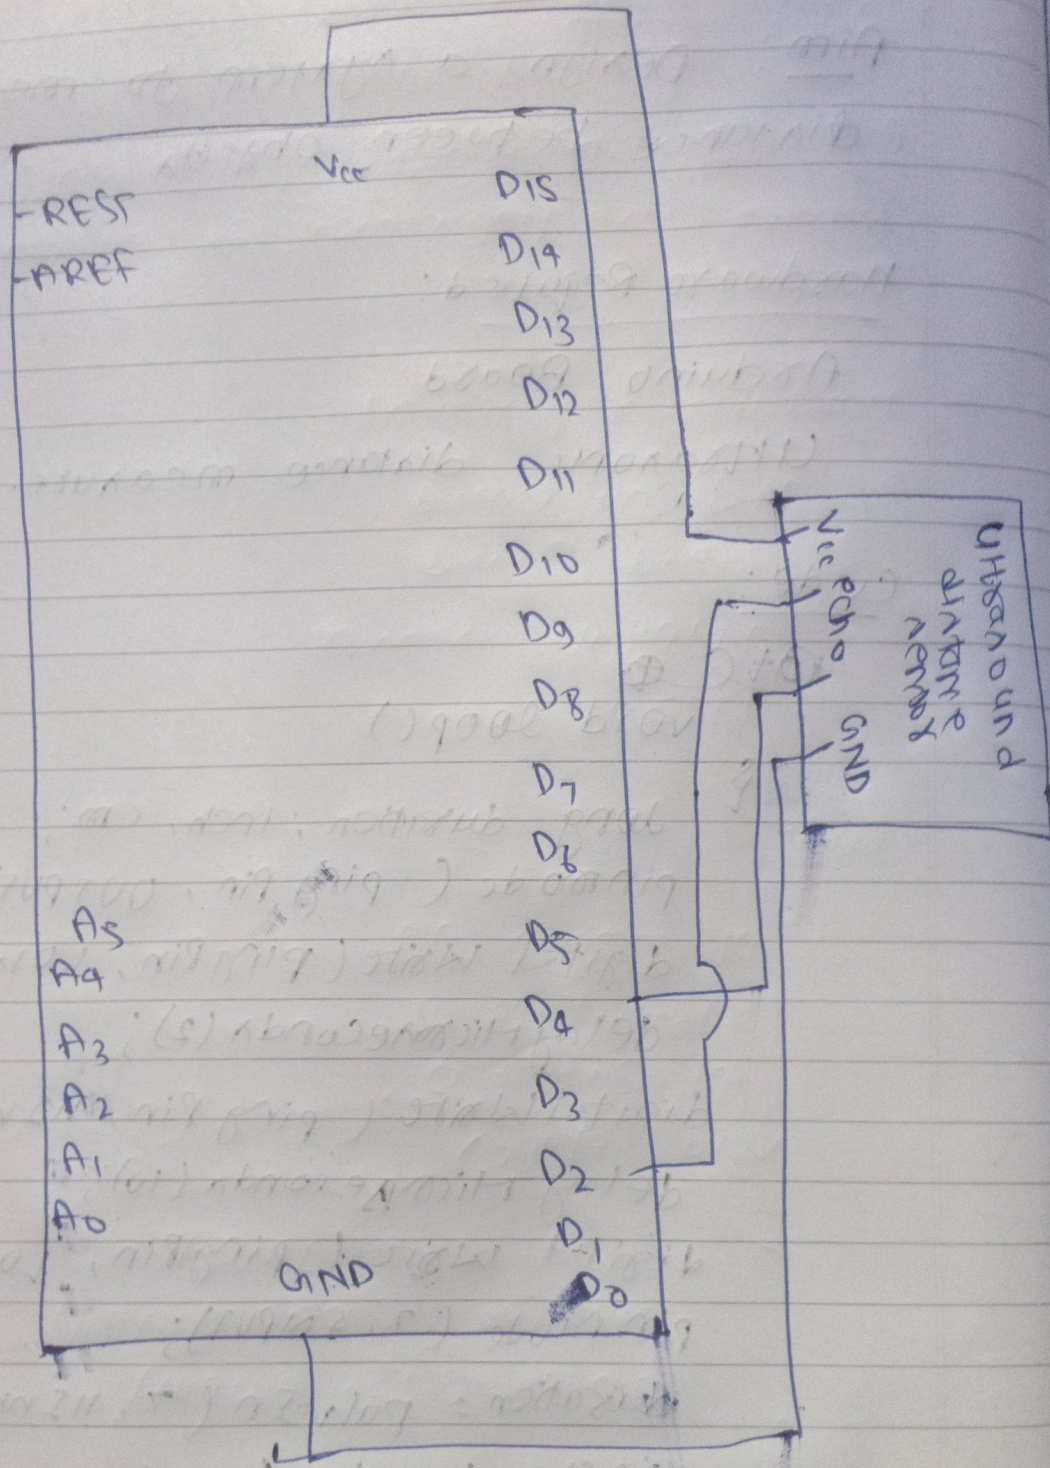 Vcc
REST
AREF
D15
D14
D13
D12
D11
D10
D9
D8
D7
D6
D5
D4
D3
D2
D1
D0
A5
A4
A3
A2
A1
A0
GND
Vcc
echo
GND
Ultrasound
distance
sensor